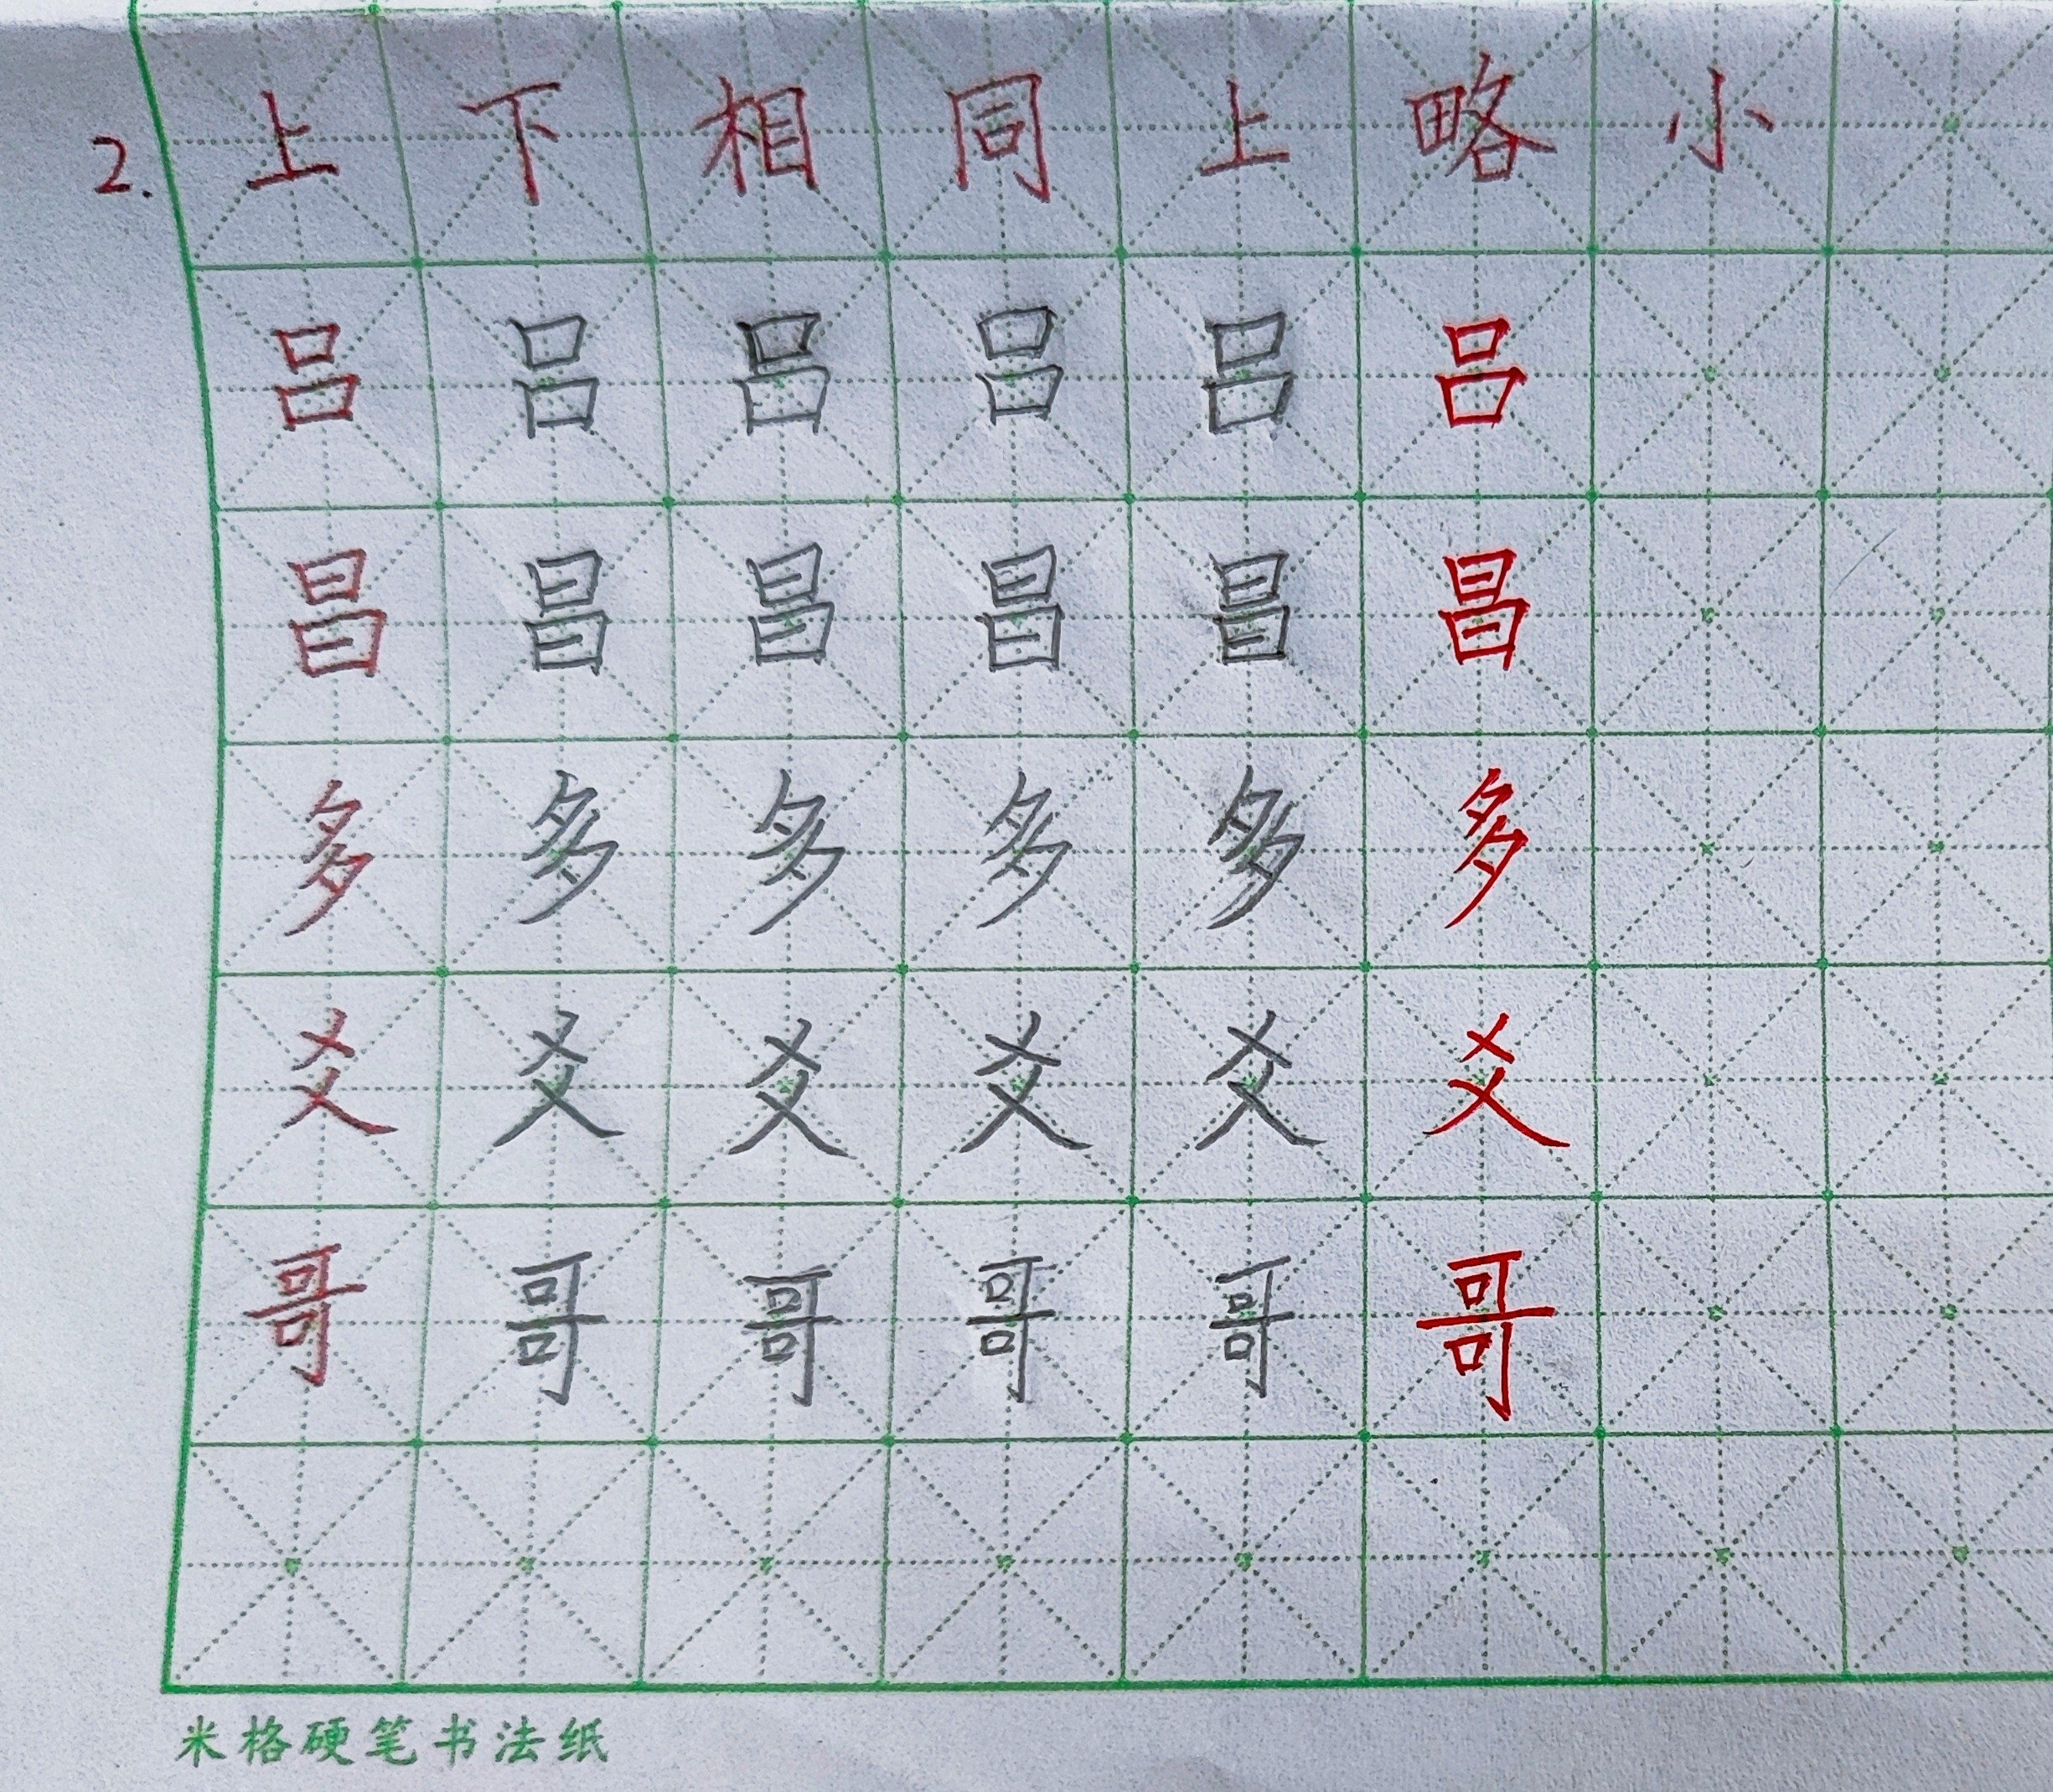 2. 上下相同上略小
吕吕吕吕吕吕
昌昌昌昌昌昌
多多多多多多
爻爻爻爻爻爻
哥哥哥哥哥哥
米格硬笔书法纸